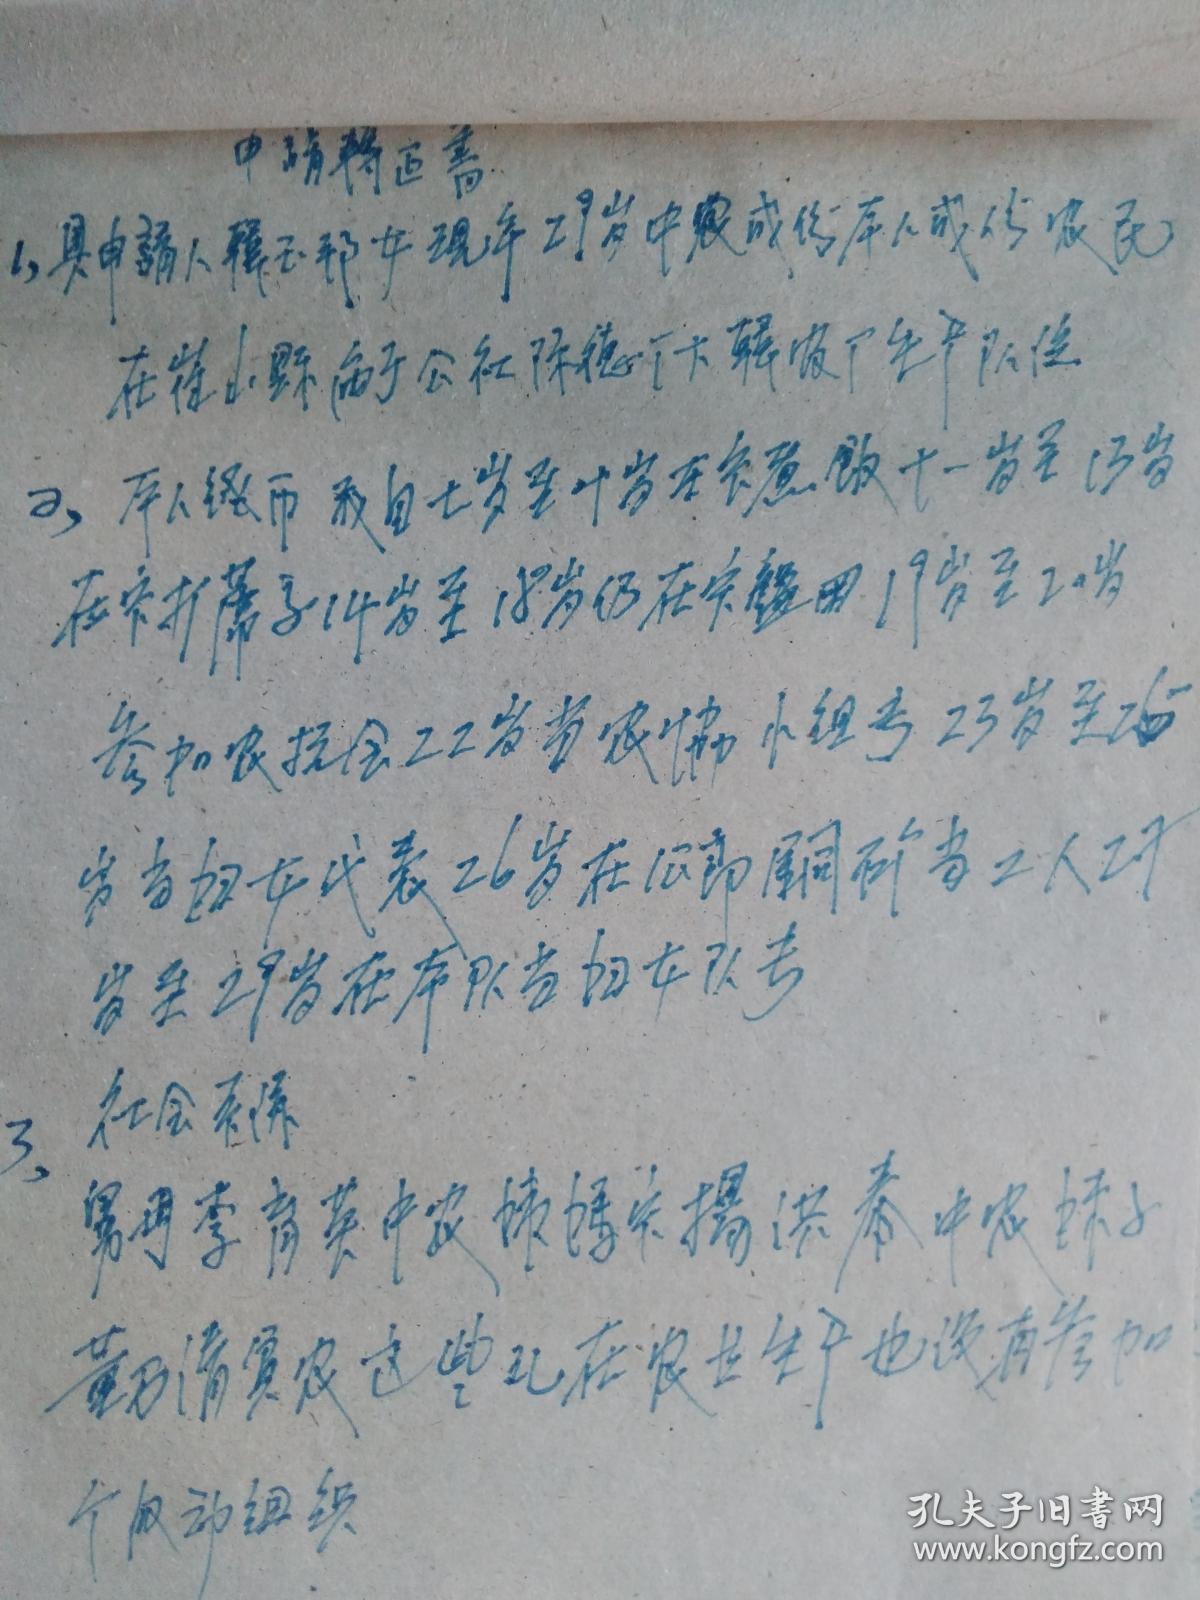 申請轉正書
1、具申請人韓玉邦女現年29岁中農成份本人成份农民
在崔山縣 公社陈德下大韓 生产队住
2、本人经历我自七岁至十岁在家煮飯十一岁至13岁
在家打蓆子14岁至18岁仍在家種田19岁至20岁
参加农抗会22岁当农协小组長23岁至25
岁当妇女代表26岁在 銅矿当工人27
岁至29岁在本队当妇女队長
3、社会关係
舅母李育英中农姨 家楊洪泰中农妹子
董 清貧农这些 在农业生产也没有参加
个反动组织
孔夫子旧书网
www.kongfz.com